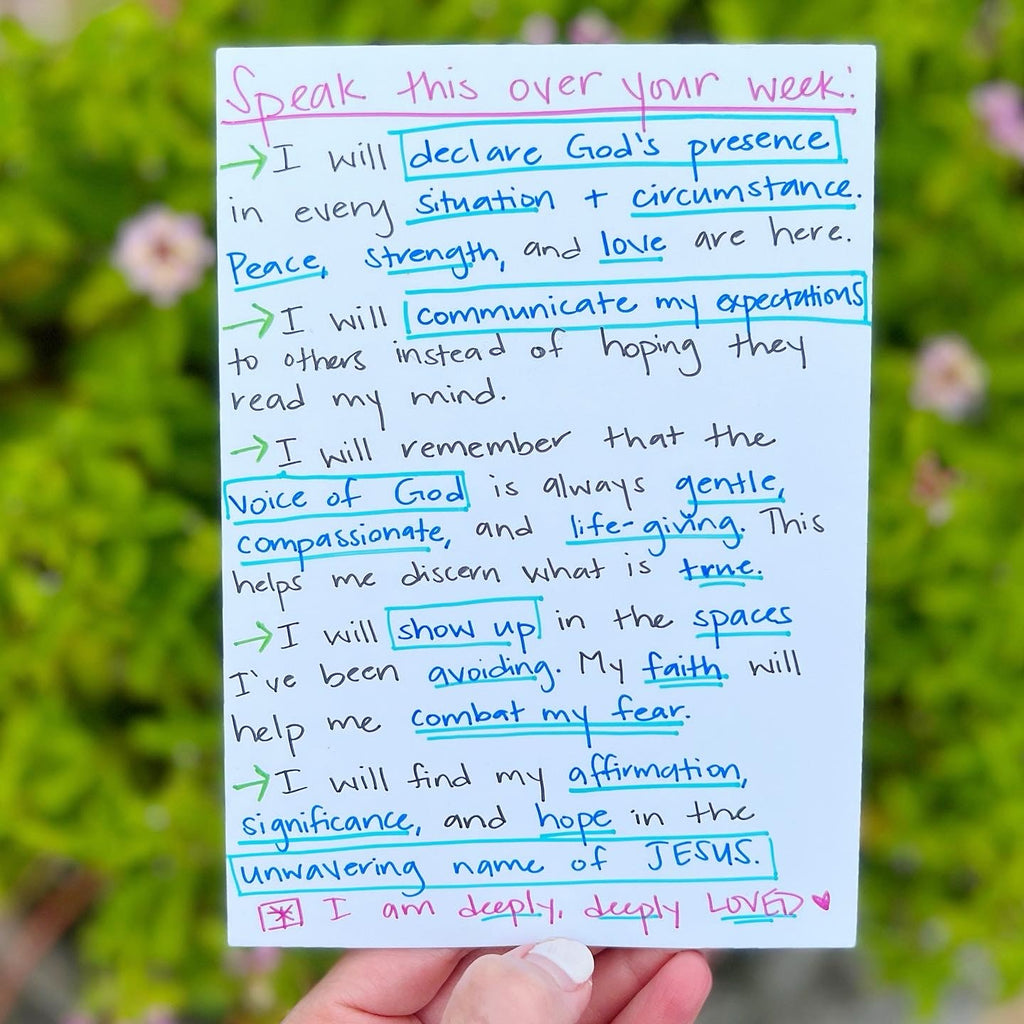 Speak this over your week:
→ I will declare God's presence
in every situation + circumstance.
Peace, strength, and love are here.
→ I will communicate my expectations
to others instead of hoping they
read my mind.
→ I will remember that the
voice of God is always gentle,
compassionate, and life-giving. This
helps me discern what is true.
→ I will show up in the spaces
I've been avoiding. My faith will
help me combat my fear.
→ I will find my affirmation,
significance, and hope in the
unwavering name of JESUS.
* I am deeply, deeply LOVED ♥